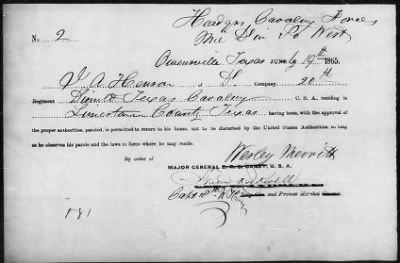 Hdqrs Cavalry Forces
Mil Div West
No. 2
Owensville Texas July 19th 1865.
J A Henson, Company 20th
Regiment Texas Cavalry C. S. A., residing in
Limestone County Texas having been, with the approval of
the proper authorities, paroled, is permitted to return to his home, not to be disturbed by the United States Authorities, so long
as he observes his parole and the laws in force where he may reside.
By order of Wesley Merritt
MAJOR GENERAL E. R. S. CANBY, U. S. A.
Capt 18th N.Y. and Provost Marshal General